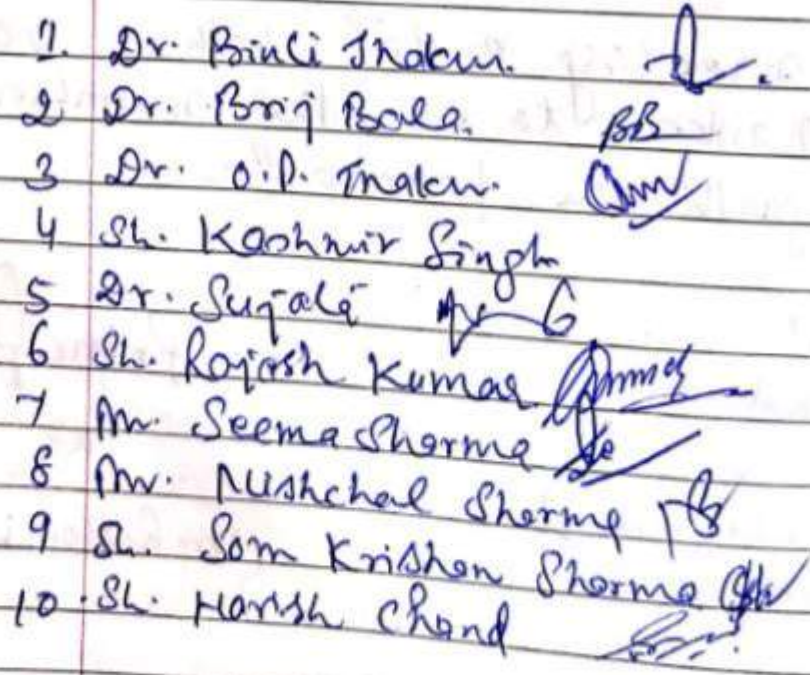 1. Dr. Binli Thakur.
2 Dr. Brij Bala. BB
3 Dr. O.P. Thakur.
4 Sh. Kashmir Singh
5 Dr. Sujata
6 Sh. Rajesh Kumar
7 Mr. Seema Sharma
8 Mr. Nishchal Sharma
9 Sh. Som Krishan Sharma
10. Sh. Harish Chand